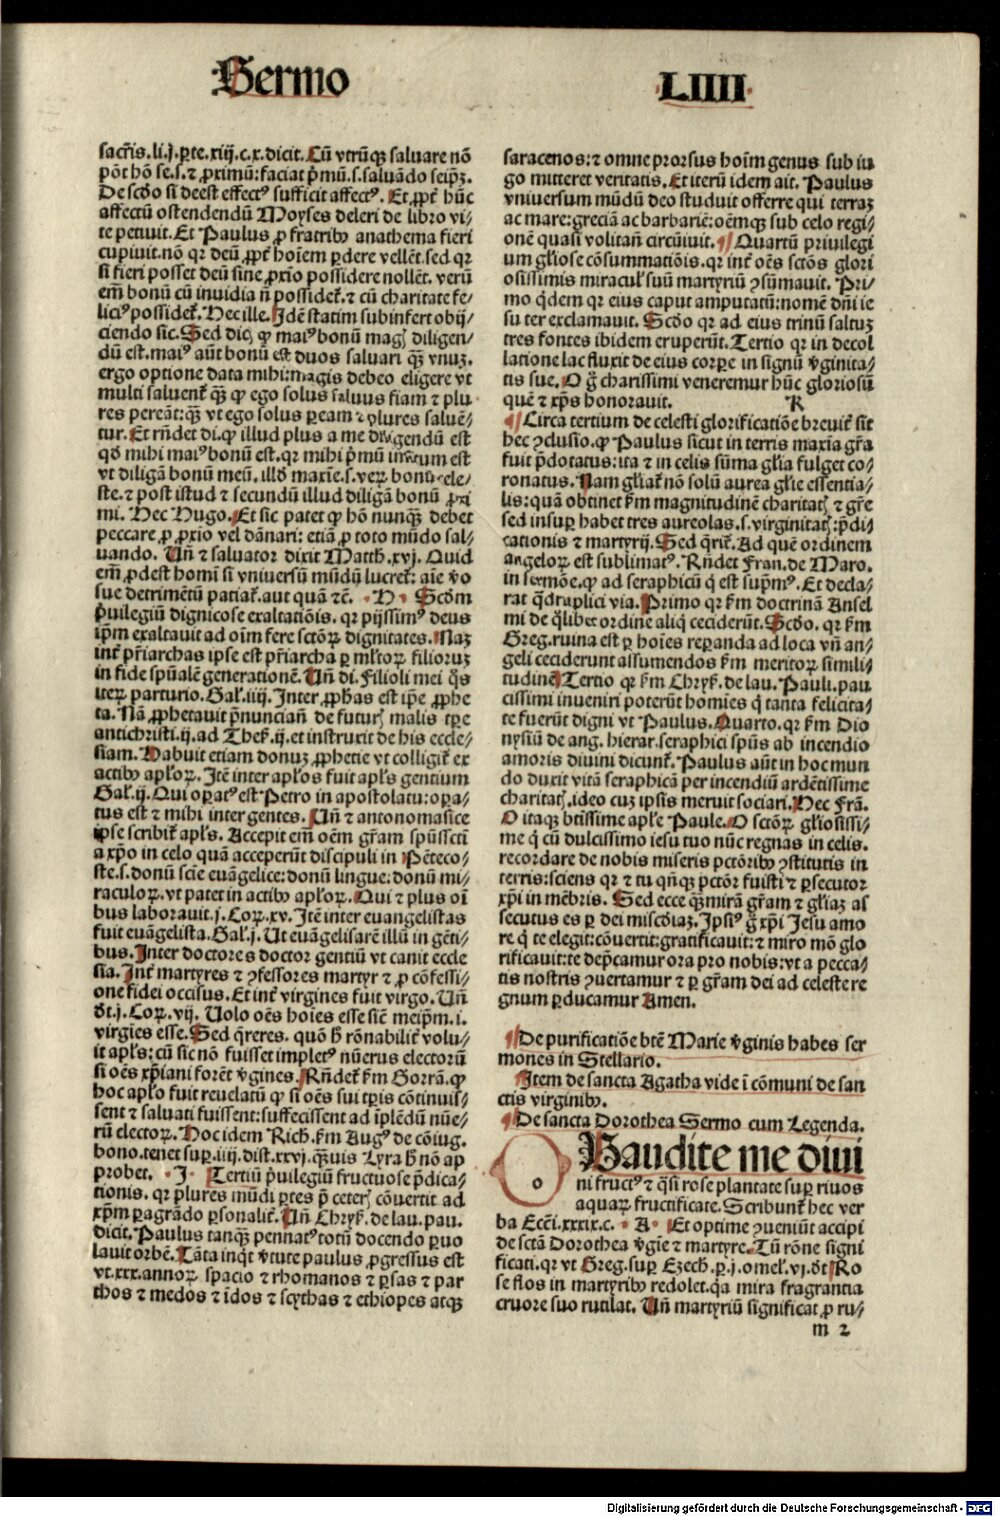 Sermo LIIII
sacr̃is.li.j.p̱te.xiij.c.x.dicit. Cũ vtrũq₃ saluare nõ
põt hõ se.s.⁊ ꝓximũ: faciat p̃mũ.s.saluãdo seip̃₃.
De scd̃o si deest effectꝰ sufficit affectꝰ. Et ꝓpt̃ hũc
affectũ ostendendũ Moyses deleri de libro vi⸗
te petiuit. Et Paulus ꝓ fratribꝰ anathema fieri
cupiuit. nõ qꝛ deũ ꝓpt̃ hoĩem ꝑdere vellẽt. sed qꝛ
si fieri posset deũ sine ꝓxĩo possidere nollẽt. verũ
em̃ bonũ cũ inuidia ñ possidet̃.⁊ cũ charitate fe⸗
liciꝰ possidet̃. Hec ille. Idẽ statim subinfert obij⸗
ciendo sic. Sed dicꝭ ꝙ maiꝰ bonũ magꝭ diligen⸗
dũ est. maiꝰ aũt bonũ est duos saluari q̃₃ vnũ₃.
ergo optione data mihi: magis debeo eligere vt
multi saluent̃ q̃₃ ꝙ ego solus saluus fiam ⁊ plu
res pereãt: q̃₃ vt ego solus ꝑeam ⁊ plures saluẽ⸗
tur. Et rñdet di. ꝙ illud plus a me diligendũ est
qd̃ mihi maiꝰ bonũ est. qꝛ mihi p̃mũ est
vt diligã bonũ meũ. illd̃ maxĩe.s.veꝝ bonũ cele⸗
ste. ⁊ post istud ⁊ secundũ illud diligã bonũ ꝓxi
mi. Hec Hugo. Et sic patet ꝙ hõ nunq̃₃ debet
peccare ꝓ ꝓxĩo vel dãnari: etiã ꝓ toto mũdo sal⸗
uando. Uñ ⁊ saluator dixit Matth.xvj. Quid
em̃ ꝓdest homĩ si vniuersũ mũdũ lucret̃: aĩe ṽo
sue detrimẽtũ patiat̃. aut quã ⁊c̃. ·H· Scd̃m
p̃uilegiũ dignicose exaltatiõis. qꝛ pijssimꝰ deus
ip̃m exaltauit ad oĩm fere sctõꝝ dignitates. Nã₃
int̃ pr̃iarchas ipse est pr̃iarcha ꝑ ml̃toꝝ filioru₃
in fide spũalẽ generationẽ. Uñ di. Filioli mei q̃s
iteꝝ parturio. Gal̃.iiij. Inter ꝓphas est ip̃e ꝓphe
ta. Nã ꝓphetauit p̃nunciañ de futurꝭ malis tp̃e
antichristi.ij.ad Thes̃.ij. et instruxit de his eccle⸗
siam. Habuit etiam donu₃ ꝓphetie vt colligit̃ ex
actibꝰ apl̃oꝝ. Itẽ inter apl̃os fuit apl̃s gentium
Gal̃.ij. Qui oꝑatꝰ est Petro in apostolatu: oꝑa⸗
tus est ⁊ mihi inter gentes. Uñ ⁊ antonomasice
ipse scribit̃ apl̃s. Accepit em̃ oẽm gr̃am spũssctĩ
a xp̃o in celo quã acceperũt discipuli in Pẽteco⸗
ste.s.donũ scĩe euãgelice: donũ lingue: donũ mi⸗
raculoꝝ. vt patet in actibꝰ apl̃oꝝ. Qui ⁊ plus oĩ
bus laborauit.j.Coꝝ.xv. Itẽ inter euangelistas
fuit euãgelista. Gal̃.j. Ut euãgelisarẽ illũ in gẽti⸗
bus. Inter doctores doctor gentiũ vt canit eccle
sia. Int̃ martyres ⁊ ꝯfessores martyr ⁊ ꝓ cõfessi⸗
one fidei occisus. Et int̃ virgines fuit virgo. Uñ
d̃t.j.Coꝝ.vij. Uolo oẽs hoĩes esse sic̃ meip̃m.i.
virgĩes esse. Sed q̃reres. quõ h̃ rõnabilit̃ volu⸗
it apl̃s: cũ sic nõ fuisset impletꝰ nũerus electorũ
si oẽs xp̃iani forẽt ṽgines. Rñdet̃ ẝm Gorrã. ꝙ
hoc apl̃o fuit reuelatũ ꝙ si oẽs sui tp̃is cõtinuis⸗
sent ⁊ saluati fuissent: suffecissent ad ĩplẽdũ nũe⸗
rũ electoꝝ. Hoc idem Rich. ẝm Augꝰ de cõiug.
bono. tenet suꝑ.iiij.dist.xxvj. q̃₃uis Lyra h̃ nõ ap
probet. ·I· Tertiũ p̃uilegiũ fructuose p̃dica⸗
tionis. qꝛ plures mũdi ꝑtes p̃ ceterꝭ cõuertit ad
xp̃m ꝑagrãdo ꝑsonalit̃. Uñ Chrys̃. de lau. pau.
dicit. Paulus tanq₃ pennatꝰ totũ docendo ꝑuo
lauit orbẽ. Tãta inq̃t ṽtute paulus ꝓgressus est
vt.xxx.annoꝝ spacio ⁊ rhomanos ⁊ ꝑsas ⁊ par
thos ⁊ medos ⁊ ĩdos ⁊ scythas ⁊ ethiopes atq₃
saracenos: ⁊ omne prorsus hoĩm genus sub iu
go mitteret veritatis. Et iterũ idem ait. Paulus
vniuersum mũdũ deo studuit offerre qui terra₃
ac mare: greciã ac barbariẽ: oẽmq₃ sub celo regi⸗
onẽ quasi volitañ circũiuit. ¶ Quartũ priuilegi
um gl̃iose cõsummatiõis. qꝛ int̃ oẽs sctõs glori
osissimis miracul̃ suũ martyriũ ꝯsũmauit. Pri⸗
mo q̃dem qꝛ eius caput amputatũ: nomẽ dñi ie
su ter exclamauit. Scd̃o qꝛ ad eius trinũ saltu₃
tres fontes ibidem eruperũt. Tertio qꝛ in decol
latione lac fluxit de eius corꝑe in signũ ṽginita⸗
tis sue. O g̃ charissimi veneremur hũc gloriosũ
quẽ ⁊ xp̃s honorauit. K
¶ Circa tertium de celesti glorificatiõe breuit̃ sit
hec ꝯclusio. ꝙ Paulus sicut in terris maxĩa gr̃a
fuit p̃dotatus: ita ⁊ in celis sũma gl̃ia fulget co⸗
ronatus. Nam gl̃iat̃ nõ solũ aurea gl̃ie essentia⸗
lis: quã obtinet ẝm magnitudinẽ charitatꝭ ⁊ gr̃e
sed insuꝑ habet tres aureolas.s.virginitatꝭ: p̃di⸗
cationis ⁊ martyrij. Sed q̃rit̃. Ad quẽ ordinem
angeloꝝ est sublimatꝰ. Rñdet Fran. de Maro.
in sermõe. ꝙ ad seraphicũ q̃ est sup̃mꝰ. Et decla⸗
rat q̃druplici via. Primo qꝛ ẝm doctrinã Ansel
mi de q̃libet ordine aliq̃ ceciderũt. Scd̃o. qꝛ ẝm
Greg. ruina est ꝑ hoĩes reꝑanda ad loca vñ an⸗
geli ceciderunt assumendos ẝm meritoꝝ simili⸗
tudinẽ Tertio qꝛ ẝm Chrys̃. de lau. Pauli. pau
cissimi inueniri poterũt homĩes q̃ tanta felicita⸗
te fuerũt digni vt Paulus. Quarto. qꝛ ẝm Dio
nysiũ de ang. hierar. seraphici spũs ab incendio
amoris diuini dicunt̃. Paulus aũt in hoc mun
do duxit vitã seraphicã per incendiũ ardẽtissime
charitatꝭ. ideo cu₃ ipsis meruit sociari. Hec Frã.
O itaq₃ btissime apl̃e Paule. O sctõꝝ gl̃iosissi⸗
me q̃ cũ dulcissimo iesu tuo nũc regnas in celis.
recordare de nobis miseris pctõribꝰ ꝯstitutis in
terris: sciens qꝛ ⁊ tu qñq₃ pctõr fuisti ⁊ ꝑsecutor
xp̃i in mẽbris. Sed ecce q̃₃mirã gr̃am ⁊ gl̃ia₃ as
secutus es ꝑ dei misc̃dia₃. Ipsiꝰ g̃ xp̃i Jesu amo
re q̃ te elegit: cõuertit: gratificauit: ⁊ miro mõ glo
rificauit: te dep̃camur ora pro nobis: vt a pecca⸗
tis nostris ꝯuertamur ⁊ ꝑ gr̃am dei ad celeste re
gnum ꝑducamur Amen.
¶ De purificatiõe btẽ Marie ṽginis habes ser
mones in Stellario.
¶ Item de sancta Agatha vide ĩ cõmuni de san
ctis virginibꝰ.
¶ De sancta Dorothea Sermo cum Legenda.
o Baudite me diui
ni fructꝰ ⁊ q̃si rose plantate suꝑ riuos
aquaꝝ fructificate. Scribunt̃ hec ver
ba Ecc̃i.xxxix.c. ·A· Et optime ꝯueniũt accipi
de sctã Dorothea ṽgĩe ⁊ martyre. Tũ rõne signi
ficati. qꝛ vt Greg. suꝑ Ezech. p̱.j.omel̃.vj.d̃t Ro
se flos in martyribꝰ redolet. q̃a mira fragrantia
cruore suo rutilat. Uñ martyriũ significat̃ ꝓ ru⸗
m 2
Digitalisierung gefördert durch die Deutsche Forschungsgemeinschaft - DFG